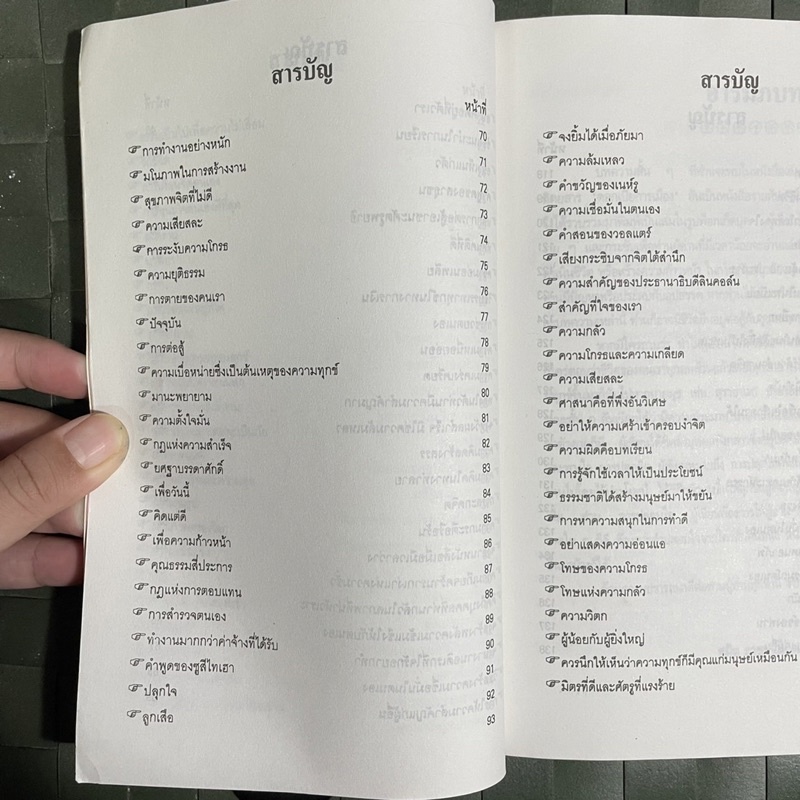 สารบัญ
หน้าที่
☞การทำงานอย่างหนัก 70
☞มโนภาพในการสร้างงาน 71
☞สุขภาพจิตที่ไม่ดี 72
☞ความเสียสละ 73
☞การระงับความโกรธ 74
☞ความยุติธรรม 75
☞การตายของคนเรา 76
☞ปัจจุบัน 77
☞การต่อสู้ 78
☞ความเบื่อหน่ายซึ่งเป็นต้นเหตุของความทุกข์ 79
☞มานะพยายาม 80
☞ความตั้งใจมั่น 81
☞กฎแห่งความสำเร็จ 82
☞ยศฐาบรรดาศักดิ์ 83
☞เพื่อวันนี้ 84
☞คิดแต่ดี 85
☞เพื่อความก้าวหน้า 86
☞คุณธรรมสี่ประการ 87
☞กฎแห่งการตอบแทน 88
☞การสำรวจตนเอง 89
☞ทำงานมากกว่าค่าจ้างที่ได้รับ 90
☞คำพูดของซูสีไทเฮา 91
☞ปลุกใจ 92
☞ลูกเสือ 93
สารบัญ
☞จงยิ้มได้เมื่อภัยมา
☞ความล้มเหลว
☞คำขวัญของเนห์รู
☞ความเชื่อมั่นในตนเอง
☞คำสอนของวอลแตร์
☞เสียงกระซิบจากจิตใต้สำนึก
☞ความสำคัญของประธานาธิบดีลินคอล์น
☞สำคัญที่ใจของเรา
☞ความกลัว
☞ความโกรธและความเกลียด
☞ความเสียสละ
☞ศาสนาคือที่พึ่งอันวิเศษ
☞อย่าให้ความเศร้าเข้าครอบงำจิต
☞ความผิดคือบทเรียน
☞การรู้จักใช้เวลาให้เป็นประโยชน์
☞ธรรมชาติได้สร้างมนุษย์มาให้ขยัน
☞การหาความสนุกในการทำดี
☞อย่าแสดงความอ่อนแอ
☞โทษของความโกรธ
☞โทษแห่งความกลัว
☞ความวิตก
☞ผู้น้อยกับผู้ยิ่งใหญ่
☞ควรนึกให้เห็นว่าความทุกข์ก็มีคุณแก่มนุษย์เหมือนกัน
☞มิตรที่ดีและศัตรูที่แรงร้าย